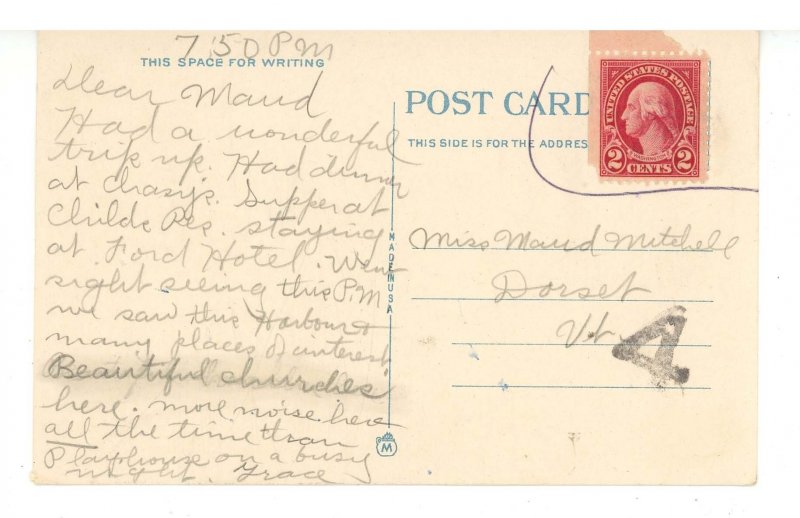 7.50 PM
THIS SPACE FOR WRITING
Dear Maud
Had a wonderful
trip up. Had dinner
at Chazy's. Supper at
Childs Res. staying
at Ford Hotel. Went
sight seeing this P.M
we saw this Harbour &
many places of interest
Beautiful churches
here. more noise here
all the time than
Playhouse on a busy
night. Grace
MADE IN USA
M
POST CARD
THIS SIDE IS FOR THE ADDRES
UNITED STATES POSTAGE
WASHINGTON
2 CENTS 2
Miss Maud Mitchell
Dorset
Vt